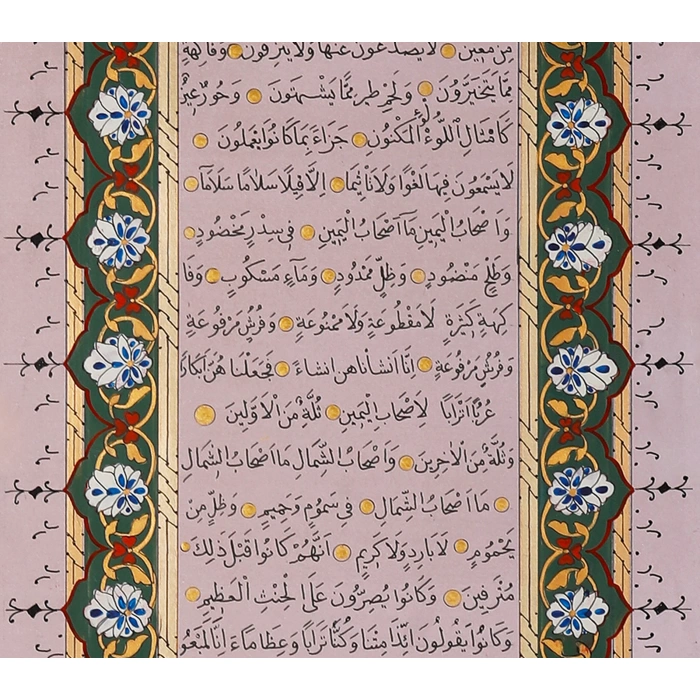 من معين لا يصدعون عنها ولا ينزفون وفاكهة
مما يتخيرون ولحم طير مما يشتهون وحور عين
كامثال اللؤلؤ المكنون جزاء بما كانوا يعملون
لا يسمعون فيها لغوا ولا تاثيما الا قيلا سلاما سلاما
واصحاب اليمين ما اصحاب اليمين في سدر مخضود
وطلح منضود وظل ممدود وماء مسكوب وفا
كهة كثيرة لا مقطوعة ولا ممنوعة وفرش مرفوعة
وفرش مرفوعة انا انشاناهن انشاء فجعلناهن ابكارا
عربا اترابا لاصحاب اليمين ثلة من الاولين
وثلة من الاخرين واصحاب الشمال ما اصحاب الشمال
ما اصحاب الشمال في سموم وحميم وظل من
يحموم لا بارد ولا كريم انهم كانوا قبل ذلك
مترفين وكانوا يصرون على الحنث العظيم
وكانوا يقولون ائذا متنا وكنا ترابا وعظاما ءانا لمبعو